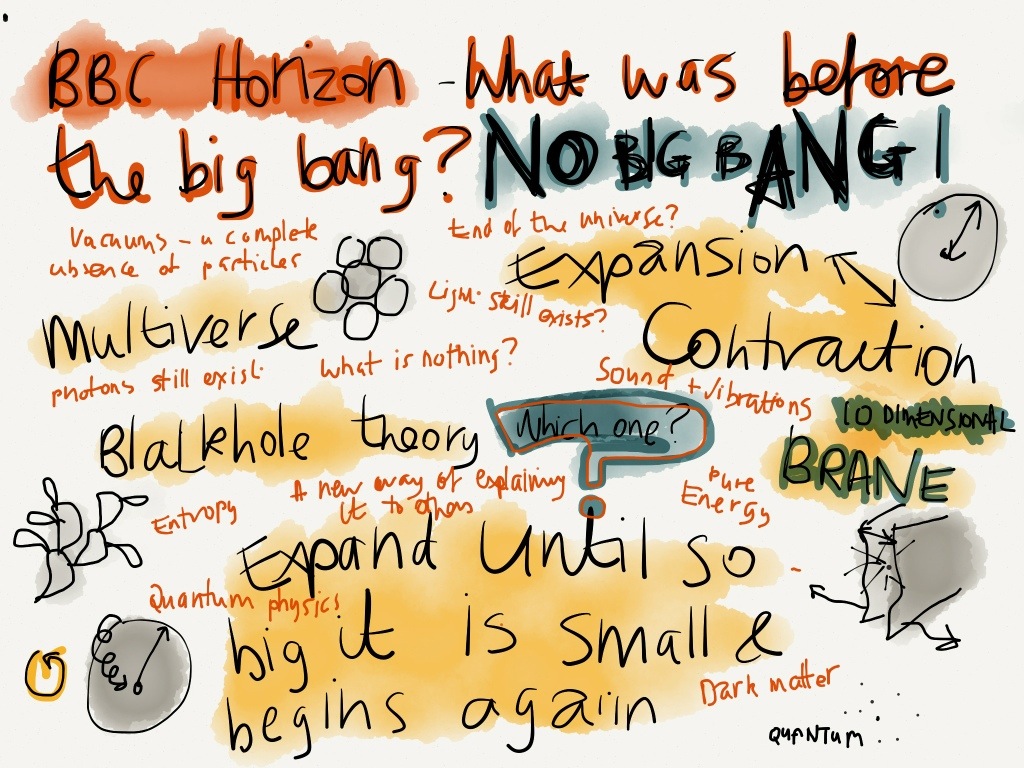 BBC Horizon - What was before
the big bang? NO BIG BANG!
Vacuums - a complete
absence of particles
End of the universe?
Expansion
Light still
exists?
Multiverse
Contraction
photons still exist.
What is nothing?
Sound + vibrations
10 DIMENSIONAL
BRANE
Blackhole theory
Which one?
A new way of explaining
it to others
Pure
Energy
Entropy
Expand Until so
Quantum physics
big it is small &
begins again
Dark matter
QUANTUM